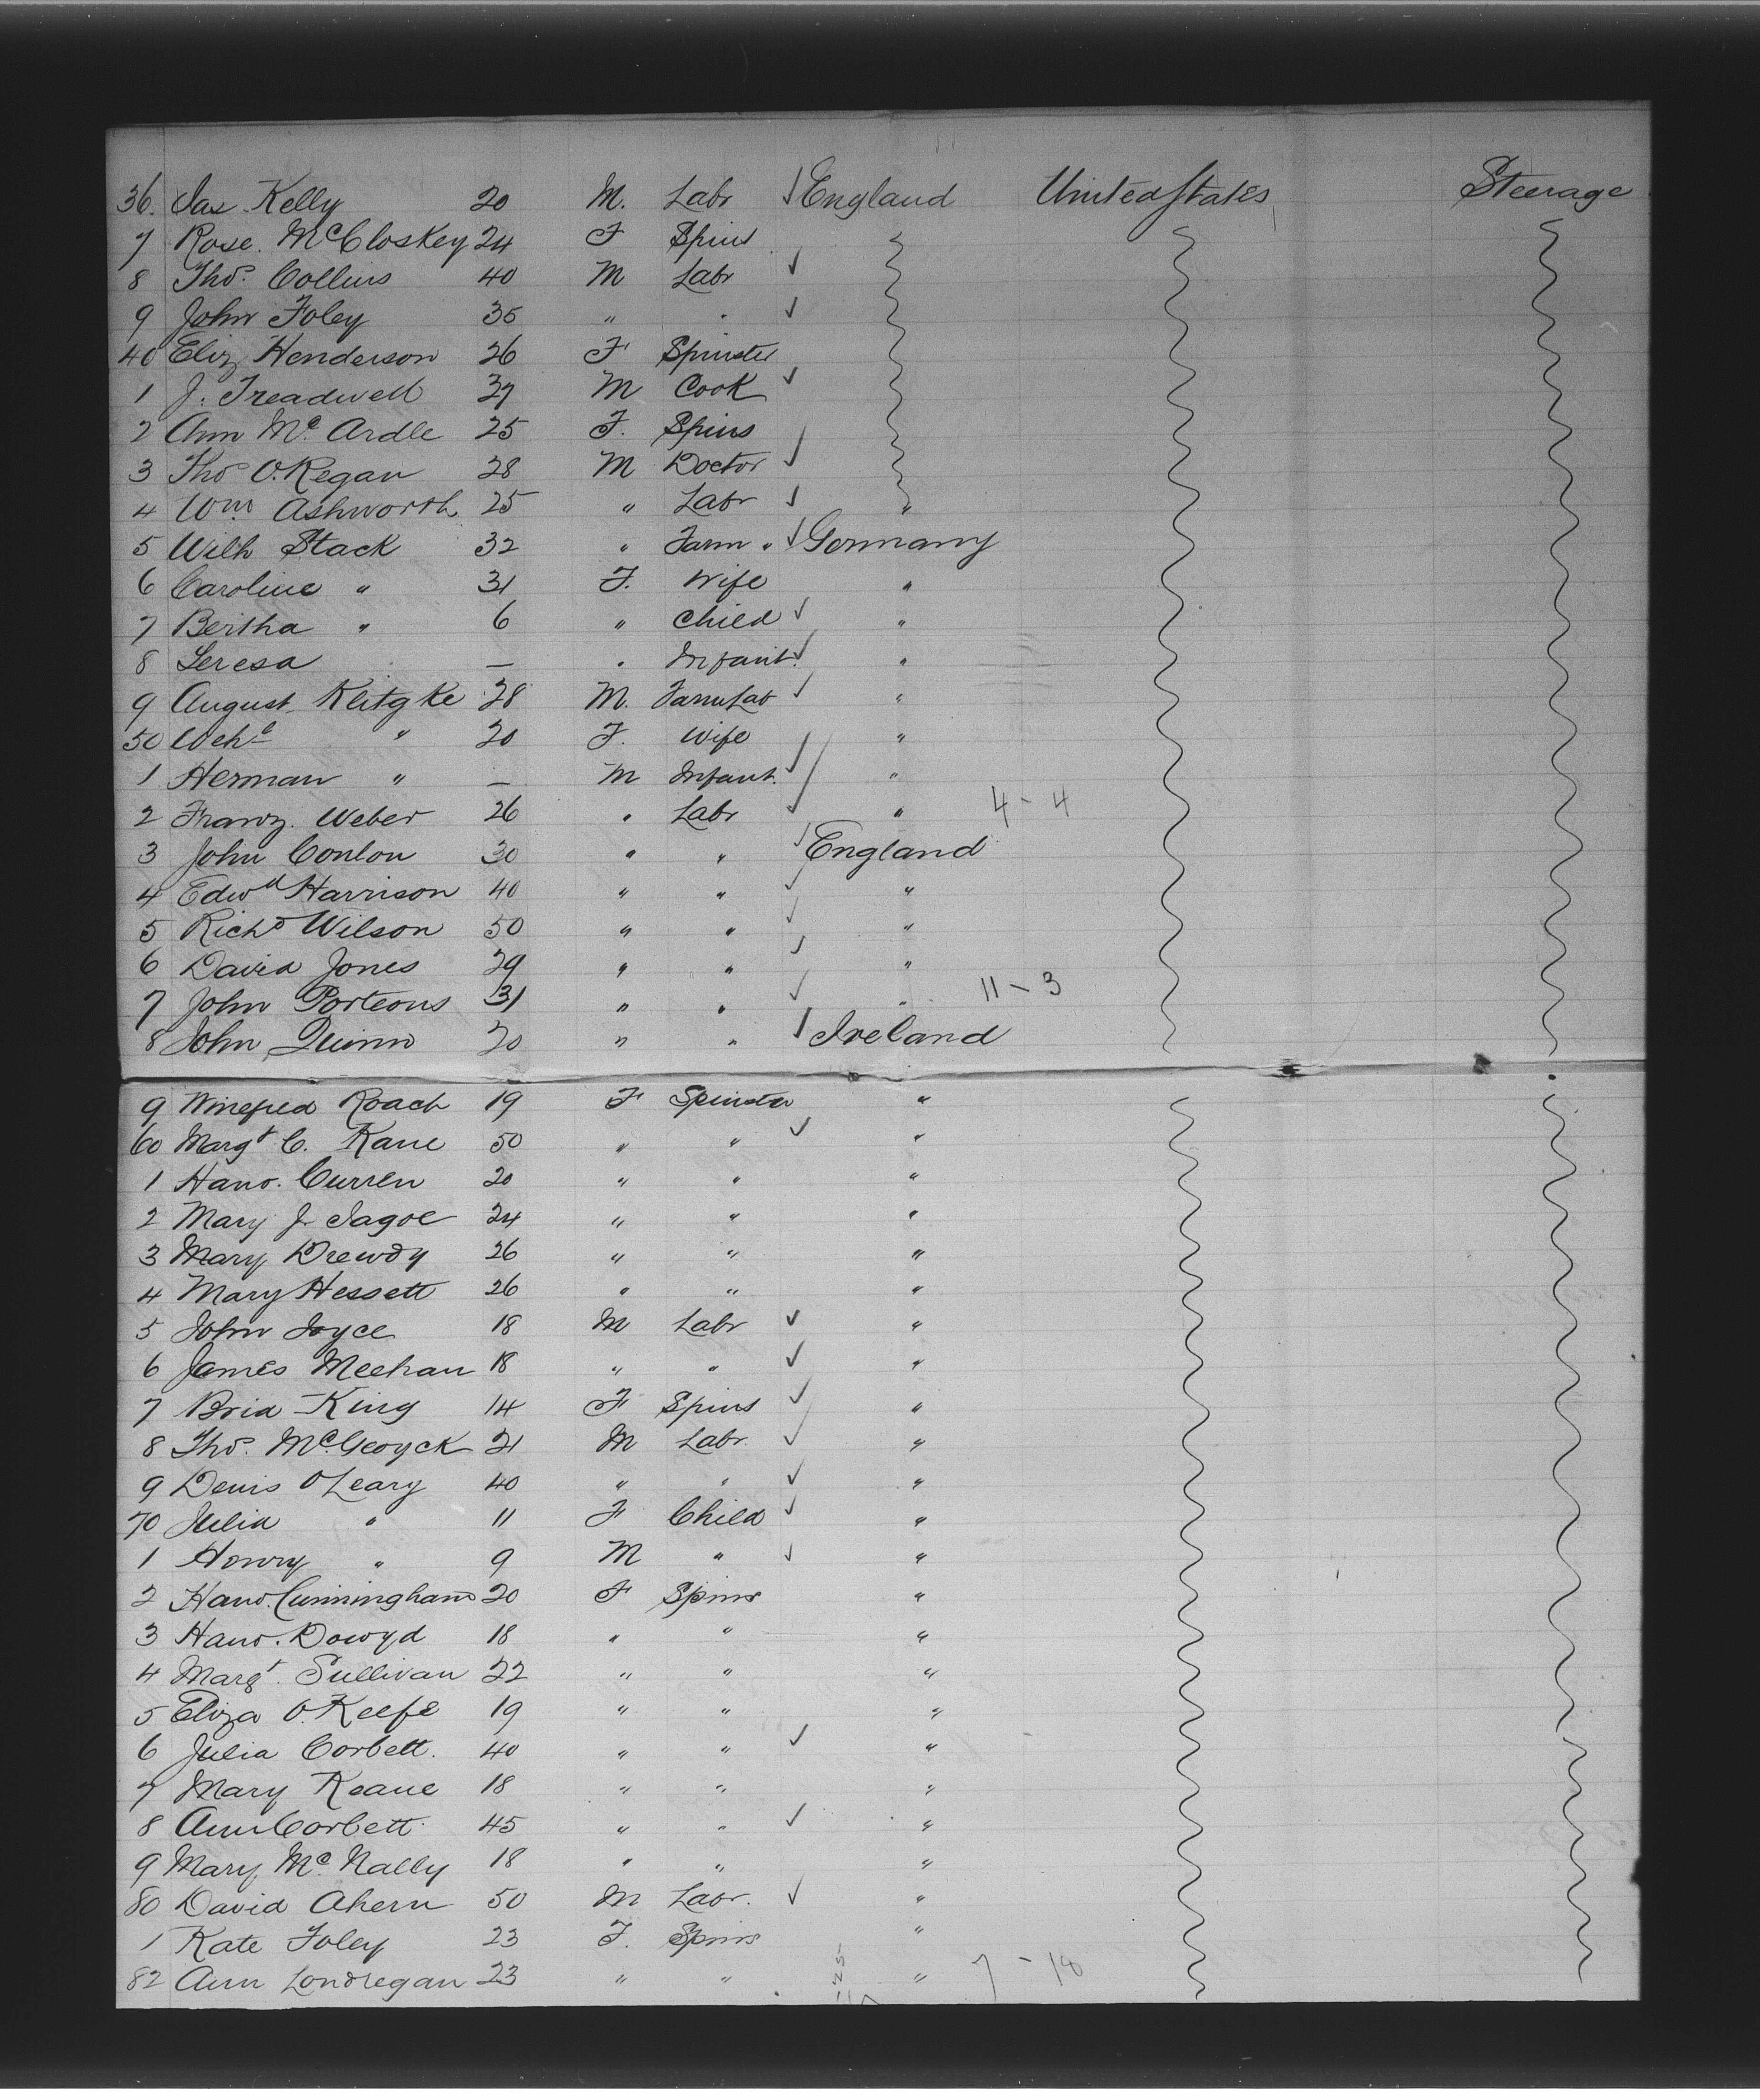 36. Jas Kelly 20 M. Labr England United States Steerage
7 Rose McCloskey 24 F Spins
8 Thos. Collins 40 M Labr
9 John Foley 35 " "
40 Eliz Henderson 26 F Spinster
1 J. Treadwell 37 M Cook
2 Ann Mc Ardle 25 F. Spins
3 Thos O.Regan 28 M Doctor
4 Wm Ashworth 25 " Labr "
5 Wilh Stack 32 " Farm " Germany
6 Caroline " 31 F. Wife "
7 Bertha " 6 " Child "
8 Teresa — " Infant "
9 August Klitgke 28 M. FarmLab "
50 " 20 F. Wife "
1 Herman " — M Infant "
2 Franz Weber 26 " Labr " 4-4
3 John Conlon 30 " " England
4 Edwd Harrison 40 " " "
5 Richd Wilson 50 " " "
6 David Jones 29 " " "
7 John Porteous 31 " " " 11-3
8 John Quinn 20 " " Ireland
9 Winefred Roach 19 F Spinster "
60 Margt C. Kane 50 " " "
1 Hano. Curren 20 " " "
2 Mary J. Jagoe 24 " " "
3 Mary Drewdy 26 " " "
4 Mary Hessett 26 " " "
5 John Joyce 18 M Labr "
6 James Meehan 18 " " "
7 Brid King 14 F Spins "
8 Thos. 21 M Labr "
9 Denis O'Leary 40 " " "
70 Julia " 11 F Child "
1 Henry " 9 M " "
2 Hano. Cunningham 20 F Spins "
3 Hano. Dowyd 18 " " "
4 Margt. Sullivan 22 " " "
5 Eliza O.Keefe 19 " " "
6 Julia Corbett. 40 " " "
7 Mary Keane 18 " " "
8 Ann Corbett 45 " " "
9 Mary Mc Nally 18 " " "
80 David Ahern 50 M Labr. "
1 Kate Foley 23 F. Spins "
82 Ann Londregan 23 " " " 7-18